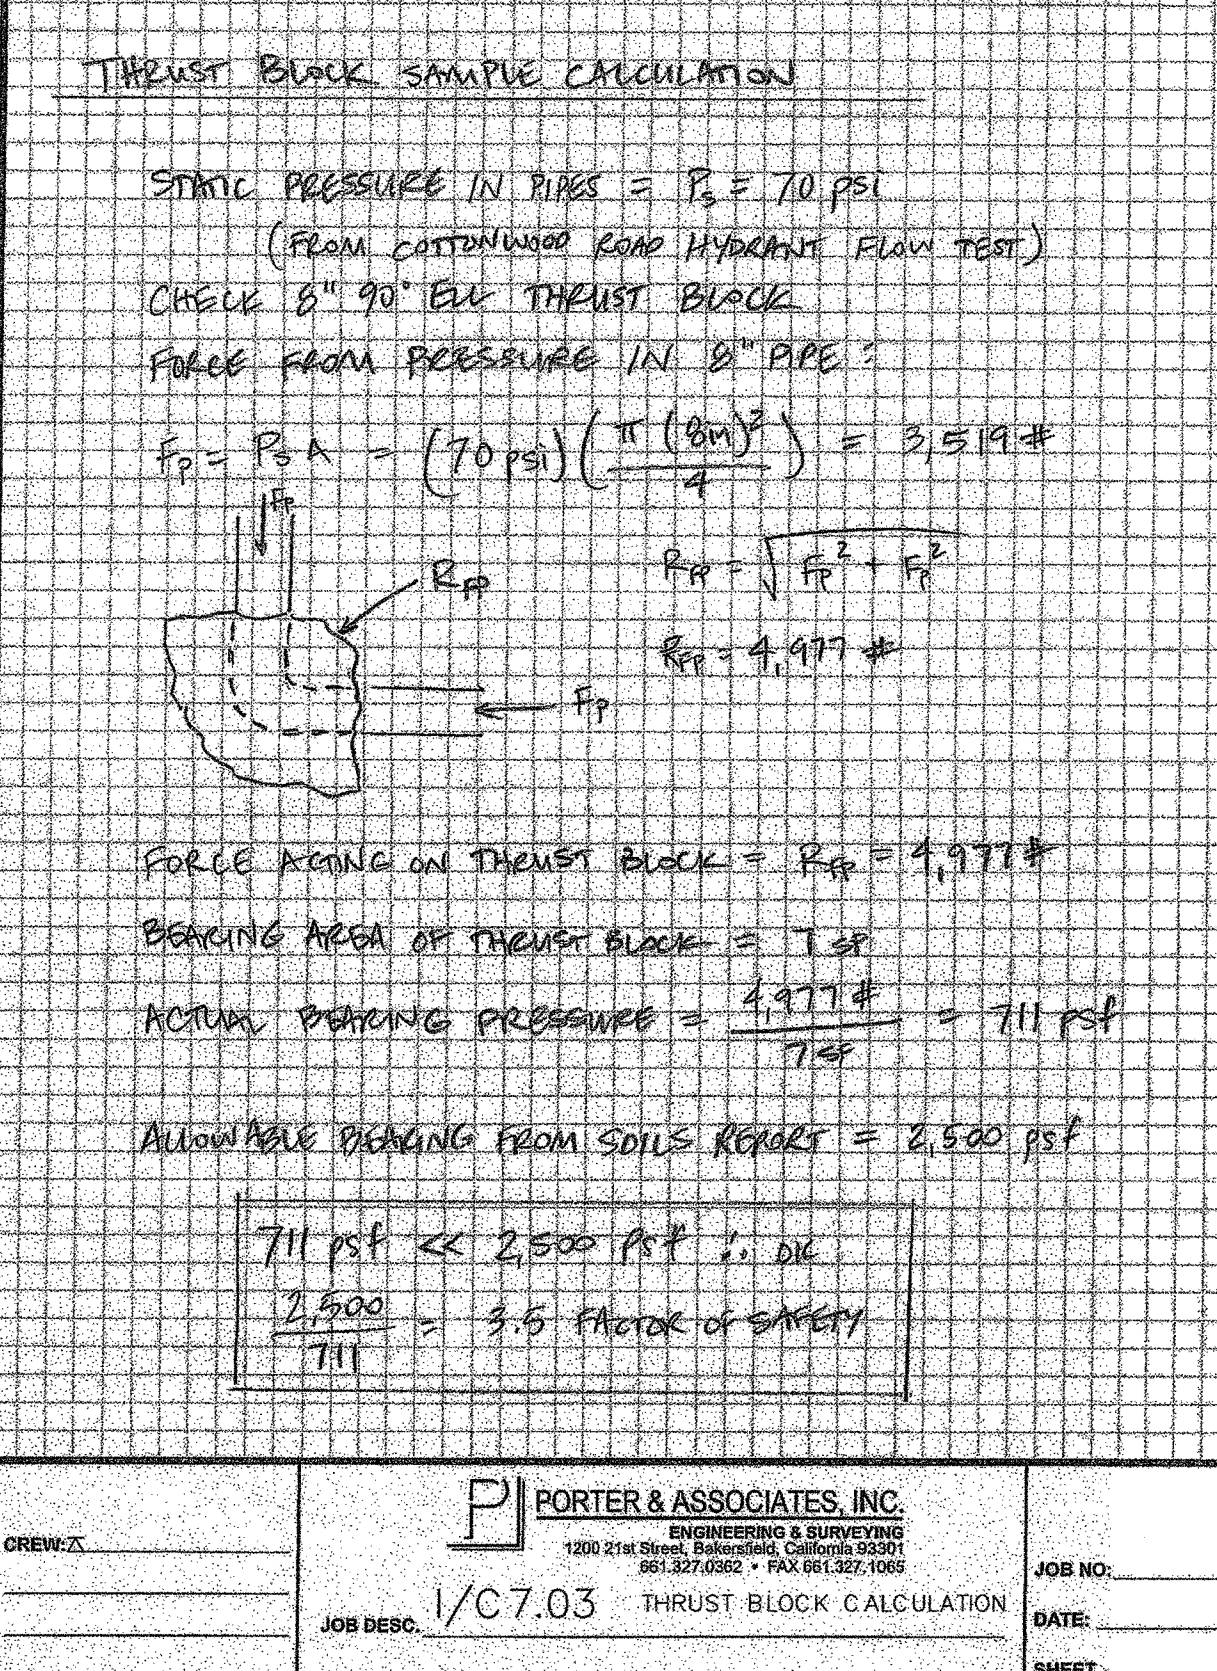 THRUST BLOCK SAMPLE CALCULATION
STATIC PRESSURE IN PIPES = Ps = 70 psi
(FROM COTTONWOOD ROAD HYDRANT FLOW TEST)
CHECK 8" 90° ELL THRUST BLOCK
FORCE FROM PRESSURE IN 8" PIPE:
Fp = Ps A = (70 psi) (π (8in)² / 4) = 3,519 #
Fp
RFP
RFP = √Fp² + Fp²
RFP = 4,977 #
Fp
FORCE ACTING ON THRUST BLOCK = RFP = 4,977 #
BEARING AREA OF THRUST BLOCK = 7 SF
ACTUAL BEARING PRESSURE = 4,977 # / 7 SF = 711 psf
ALLOWABLE BEARING FROM SOILS REPORT = 2,500 psf
711 psf << 2,500 psf ∴ OK
2,500 / 711 = 3.5 FACTOR OF SAFETY
PORTER & ASSOCIATES, INC.
ENGINEERING & SURVEYING
1200 21st Street, Bakersfield, California 93301
661.327.0362 • FAX 661.327.1065
CREW:
JOB DESC. 1/C7.03 THRUST BLOCK CALCULATION
JOB NO:
DATE:
SHEET